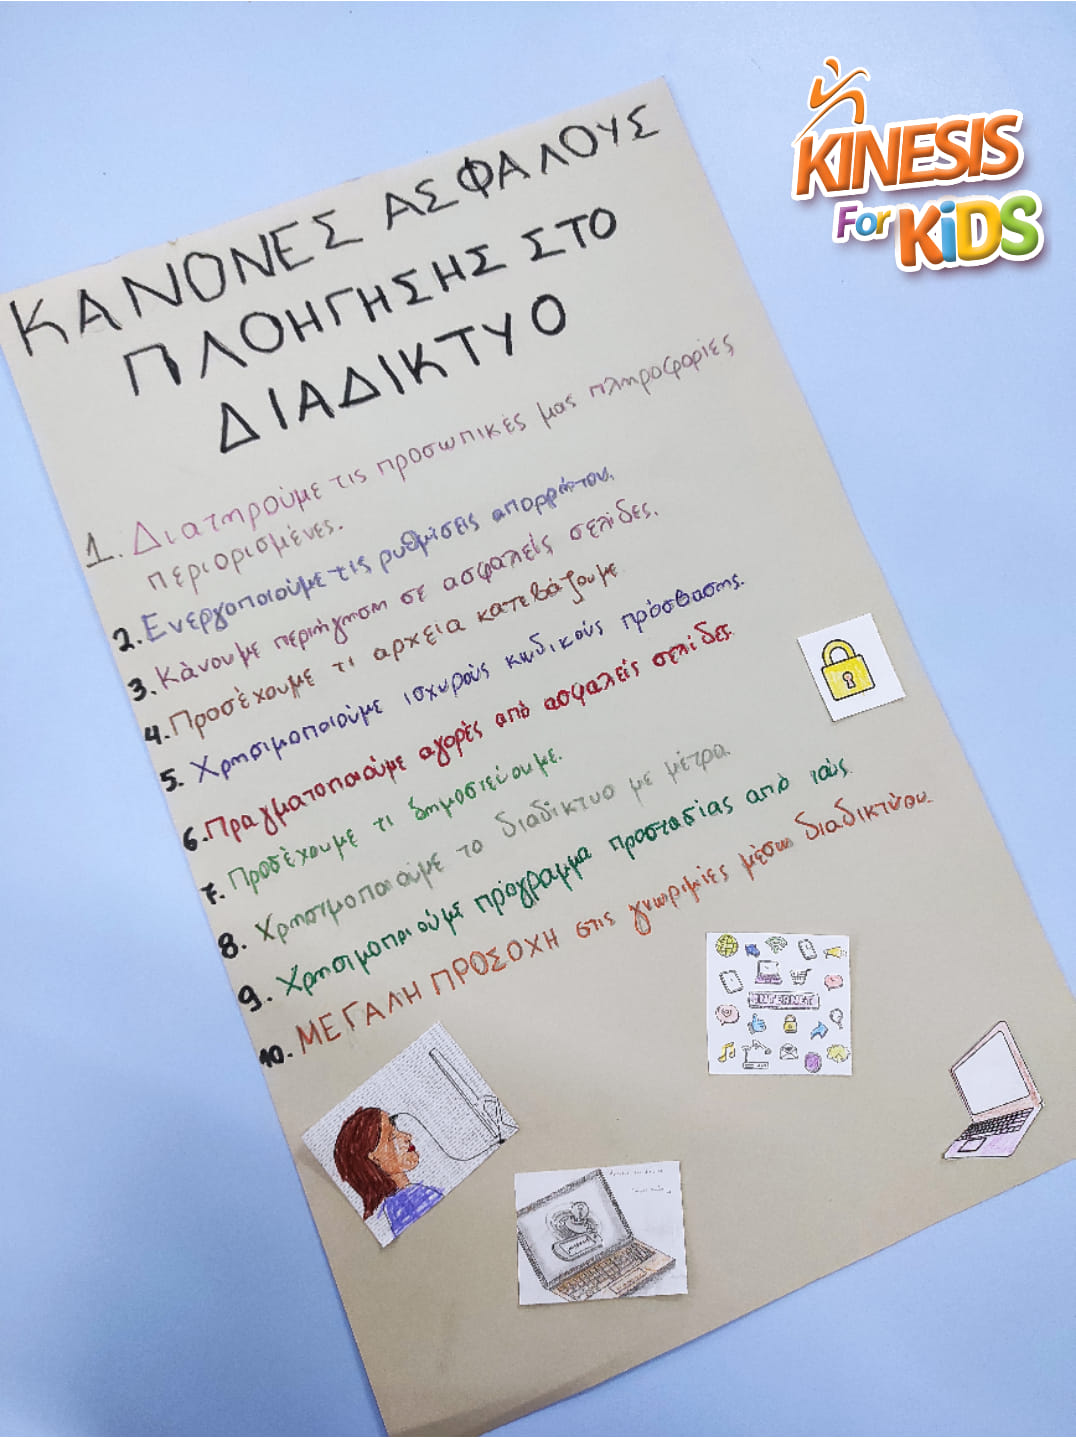 KINESIS
For KiDS
ΚΑΝΟΝΕΣ ΑΣΦΑΛΟΥΣ
ΠΛΟΗΓΗΣΗΣ ΣΤΟ
ΔΙΑΔΙΚΤΥΟ
1. Διατηρούμε τις προσωπικές μας πληροφορίες
περιορισμένες.
2. Ενεργοποιούμε τις ρυθμίσεις απορρήτου.
3. Κάνουμε περιήγηση σε ασφαλείς σελίδες.
4. Προσέχουμε τι αρχεία κατεβάζουμε
5. Χρησιμοποιούμε ισχυρούς κωδικούς πρόσβασης.
6. Πραγματοποιούμε αγορές από ασφαλείς σελίδες.
7. Προσέχουμε τι δημοσιεύουμε.
8. Χρησιμοποιούμε το διαδίκτυο με μέτρο.
9. Χρησιμοποιούμε πρόγραμμα προστασίας από ιούς.
10. ΜΕΓΑΛΗ ΠΡΟΣΟΧΗ στις γνωριμίες μέσω διαδικτύου.
INTERNET